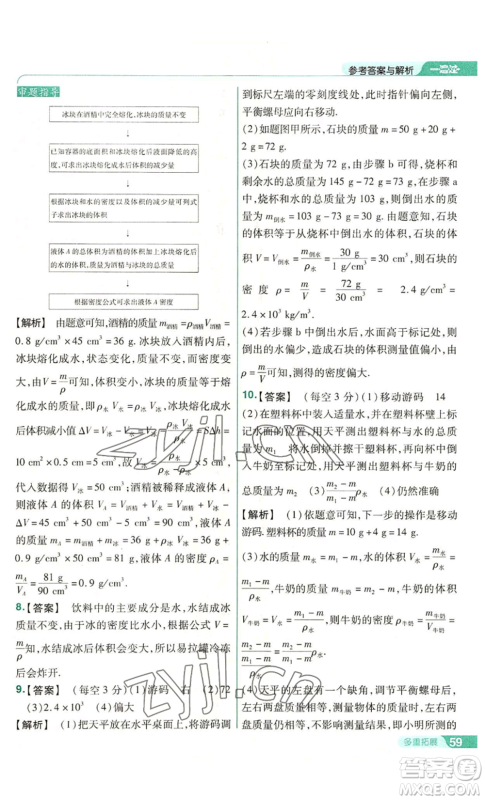 参考答案与解析 一遍过
审题指导
冰块在酒精中完全熔化,冰块的质量不变
已知容器的底面积和冰块熔化后液面降低的高度,可求出冰块熔化成水后体积的减少量
根据冰块和水的密度以及体积的减少量可列式子求出冰块的体积
液体 A 的总体积为酒精的体积加上冰块熔化后的水的体积,质量为酒精与冰块的总质量
根据密度公式可求出液体 A 密度
【解析】 由题意可知,酒精的质量 m酒精 =ρ酒精V酒精 =
0.8 g/cm³×45 cm³ = 36 g. 冰块放入酒精内后,
冰块熔化成水,状态变化,质量不变,由于水的密
度大于冰的密度,由 ρ = m/V 可知,冰块的质量等于
熔化成水的质量,即 ρ水V水 = ρ冰V冰,冰块熔化成水
后体积减小值 ΔV = V冰 - V水 = V冰 - ρ冰V冰/ρ水 = SΔh =
10 cm²×0.5 cm = 5 cm³,
代入数据得 V冰 = 50 cm³;酒精被稀释成液体 A 后,
则液体 A 的体积 VA = V酒精 + V水 = V酒精 + V冰 -
ΔV = 45 cm³ + 50 cm³ - 5 cm³ = 90 cm³,液体 A
的质量 mA = m酒精 + m冰 = m酒精 + ρ冰V冰 = 36 g +
0.9 g/cm³×50 cm³ = 81 g,则液体 A 的密度 ρA =
mA/VA = 81 g/90 cm³ = 0.9 g/cm³.
8.【答案】 饮料中的主要成分是水,水结成冰后质
量不变,由于冰的密度比水小,水结成冰后,根据
V = m/ρ 可知,水结成冰后体积变大,所以易拉罐冷冻
后会炸开.
9.【答案】 (每空 3 分)(1)游码 右 (2)72
(3)2.4×10³ (4)偏大
【解析】 (1)把天平放在水平桌面上,将游码调
到标尺左端的零刻度线处,此时指针偏向左侧,
平衡螺母应向右移动.
(2)如题图甲所示,石块的质量 m = 50 g + 20 g +
2 g = 72 g.
(3)石块的质量为 72 g,由步骤 b 可知,烧杯和
剩余水的总质量为 145 g - 72 g = 73 g,加水后烧
杯和水的总质量为 103 g,则由步骤 c 可知,加入水
的质量为 103 g - 73 g = 30 g. 由题意知,石块
的体积等于烧杯中加入水的体积,则石块的体
积 V = V加水 = m加水/ρ水 = 30 g/1 g/cm³ = 30 cm³,石块的
密度 ρ = m/V = 72 g/30 cm³ = 2.4 g/cm³ =
2.4×10³ kg/m³.
(4)若加水后,水面高于标记处,则倒出的水
偏少,石块的体积测量值偏小,由 ρ =
m/V 可知,测得的密度偏大.
10.【答案】 (每空 3 分)(1)移动游码 14
(2)在塑料杯中装入适量水,并在塑料杯壁上标
记水面的位置,用天平测出塑料杯与水的总质
量 m₁ 将水倒净,用天平测出塑料杯中再倒
入牛奶至标记处,用天平测出塑料杯与牛奶的
总质量 m₂ (3) (4)仍然准确
【解析】 (1)由题意知,下一步的操作是移动
游码. 塑料杯的质量 m = 10 g + 4 g = 14 g.
(3)水的质量 m水 = m₁ - m,水的体积 V水 =
m₁ - m/ρ水,牛奶的质量 m牛奶 = m₂ - m,牛奶的体积
V牛奶 = V水 = m₁ - m/ρ水,牛奶的密度 ρ牛奶 = m牛奶/V牛奶 =
(4)天平的左盘有缺角,但平衡螺母调节后
不影响测量结果.
多重拓展 59
zyjl.cn
答案圈